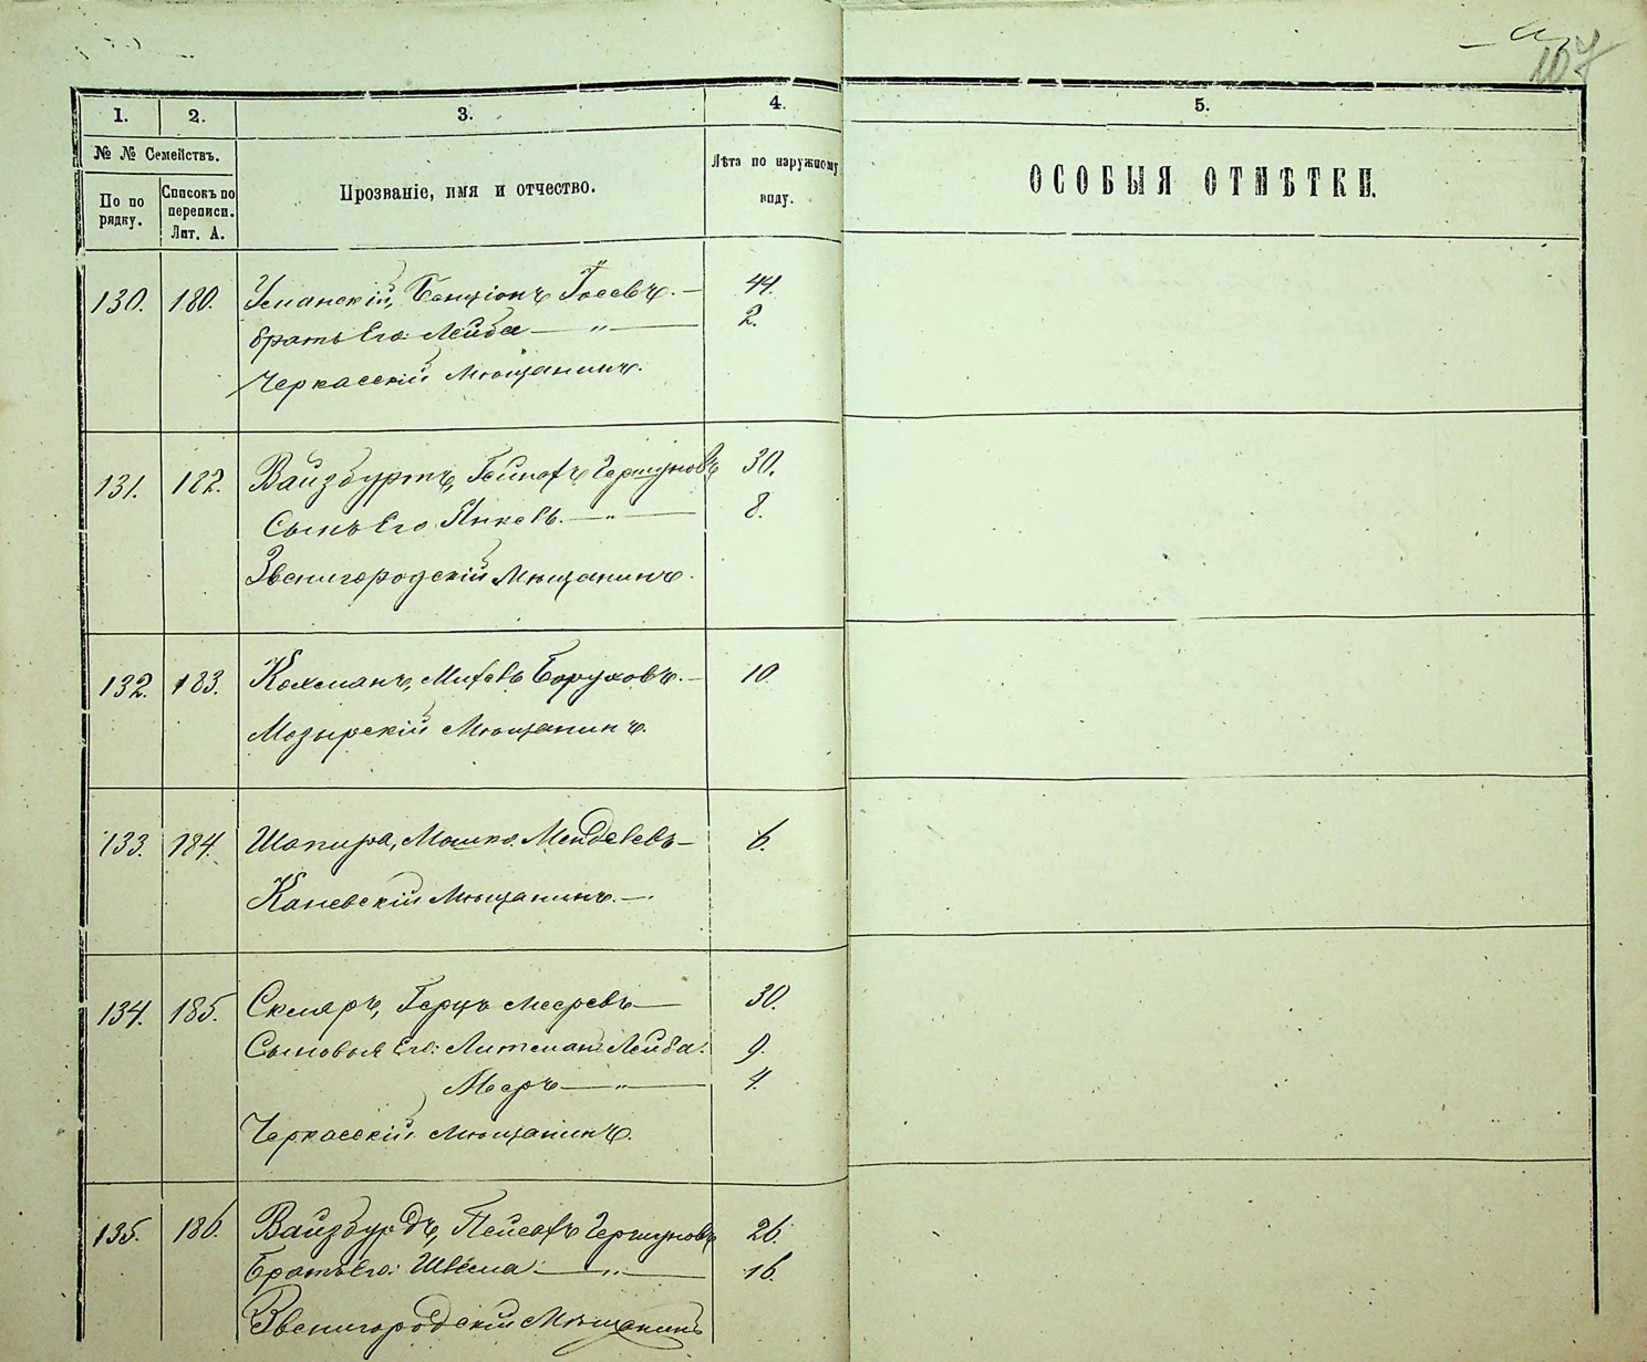 107
1. 2. 3. 4. 5.
№ № Семействъ.
По по рядку.
Списокъ по переписи. Лит. А.
Прозваніе, имя и отчество.
Лѣта по наружному виду.
ОСОБЫЯ ОТМѢТКИ.
130. 180. Уманскій, Бенціонъ Іосевъ. — 44.
братъ Его: Лейба — " — 2.
Черкасскій Мѣщанинъ.
131. 182. Вайзбуртъ, Гершуновъ 30.
Сынъ Его Янкель. — " — 8.
Звенигородскій Мѣщанинъ.
132. 183. Боруховъ. — 10.
Мозырскій Мѣщанинъ.
133. 184. Шапира, Мошко Менделевъ — 6.
Каневскій Мѣщанинъ. —
134. 185. Скляръ, Герцъ Мееровъ — 30.
Сыновья Его: Литман Лейба. 9.
Мееръ — " — 4.
Черкасскій Мѣщанинъ.
135. 186. Вайзбурдъ, Пейсахъ Гершуновъ 26.
Братъ Его: — " — 16.
Звенигородскій Мѣщанинъ